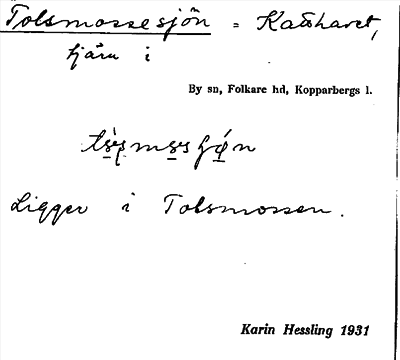 Tolsmossesjön = Kattharet,
tjärn i
By sn, Folkare hd, Kopparbergs l.
Ligger i Tolsmossen.
Karin Hessling 1931